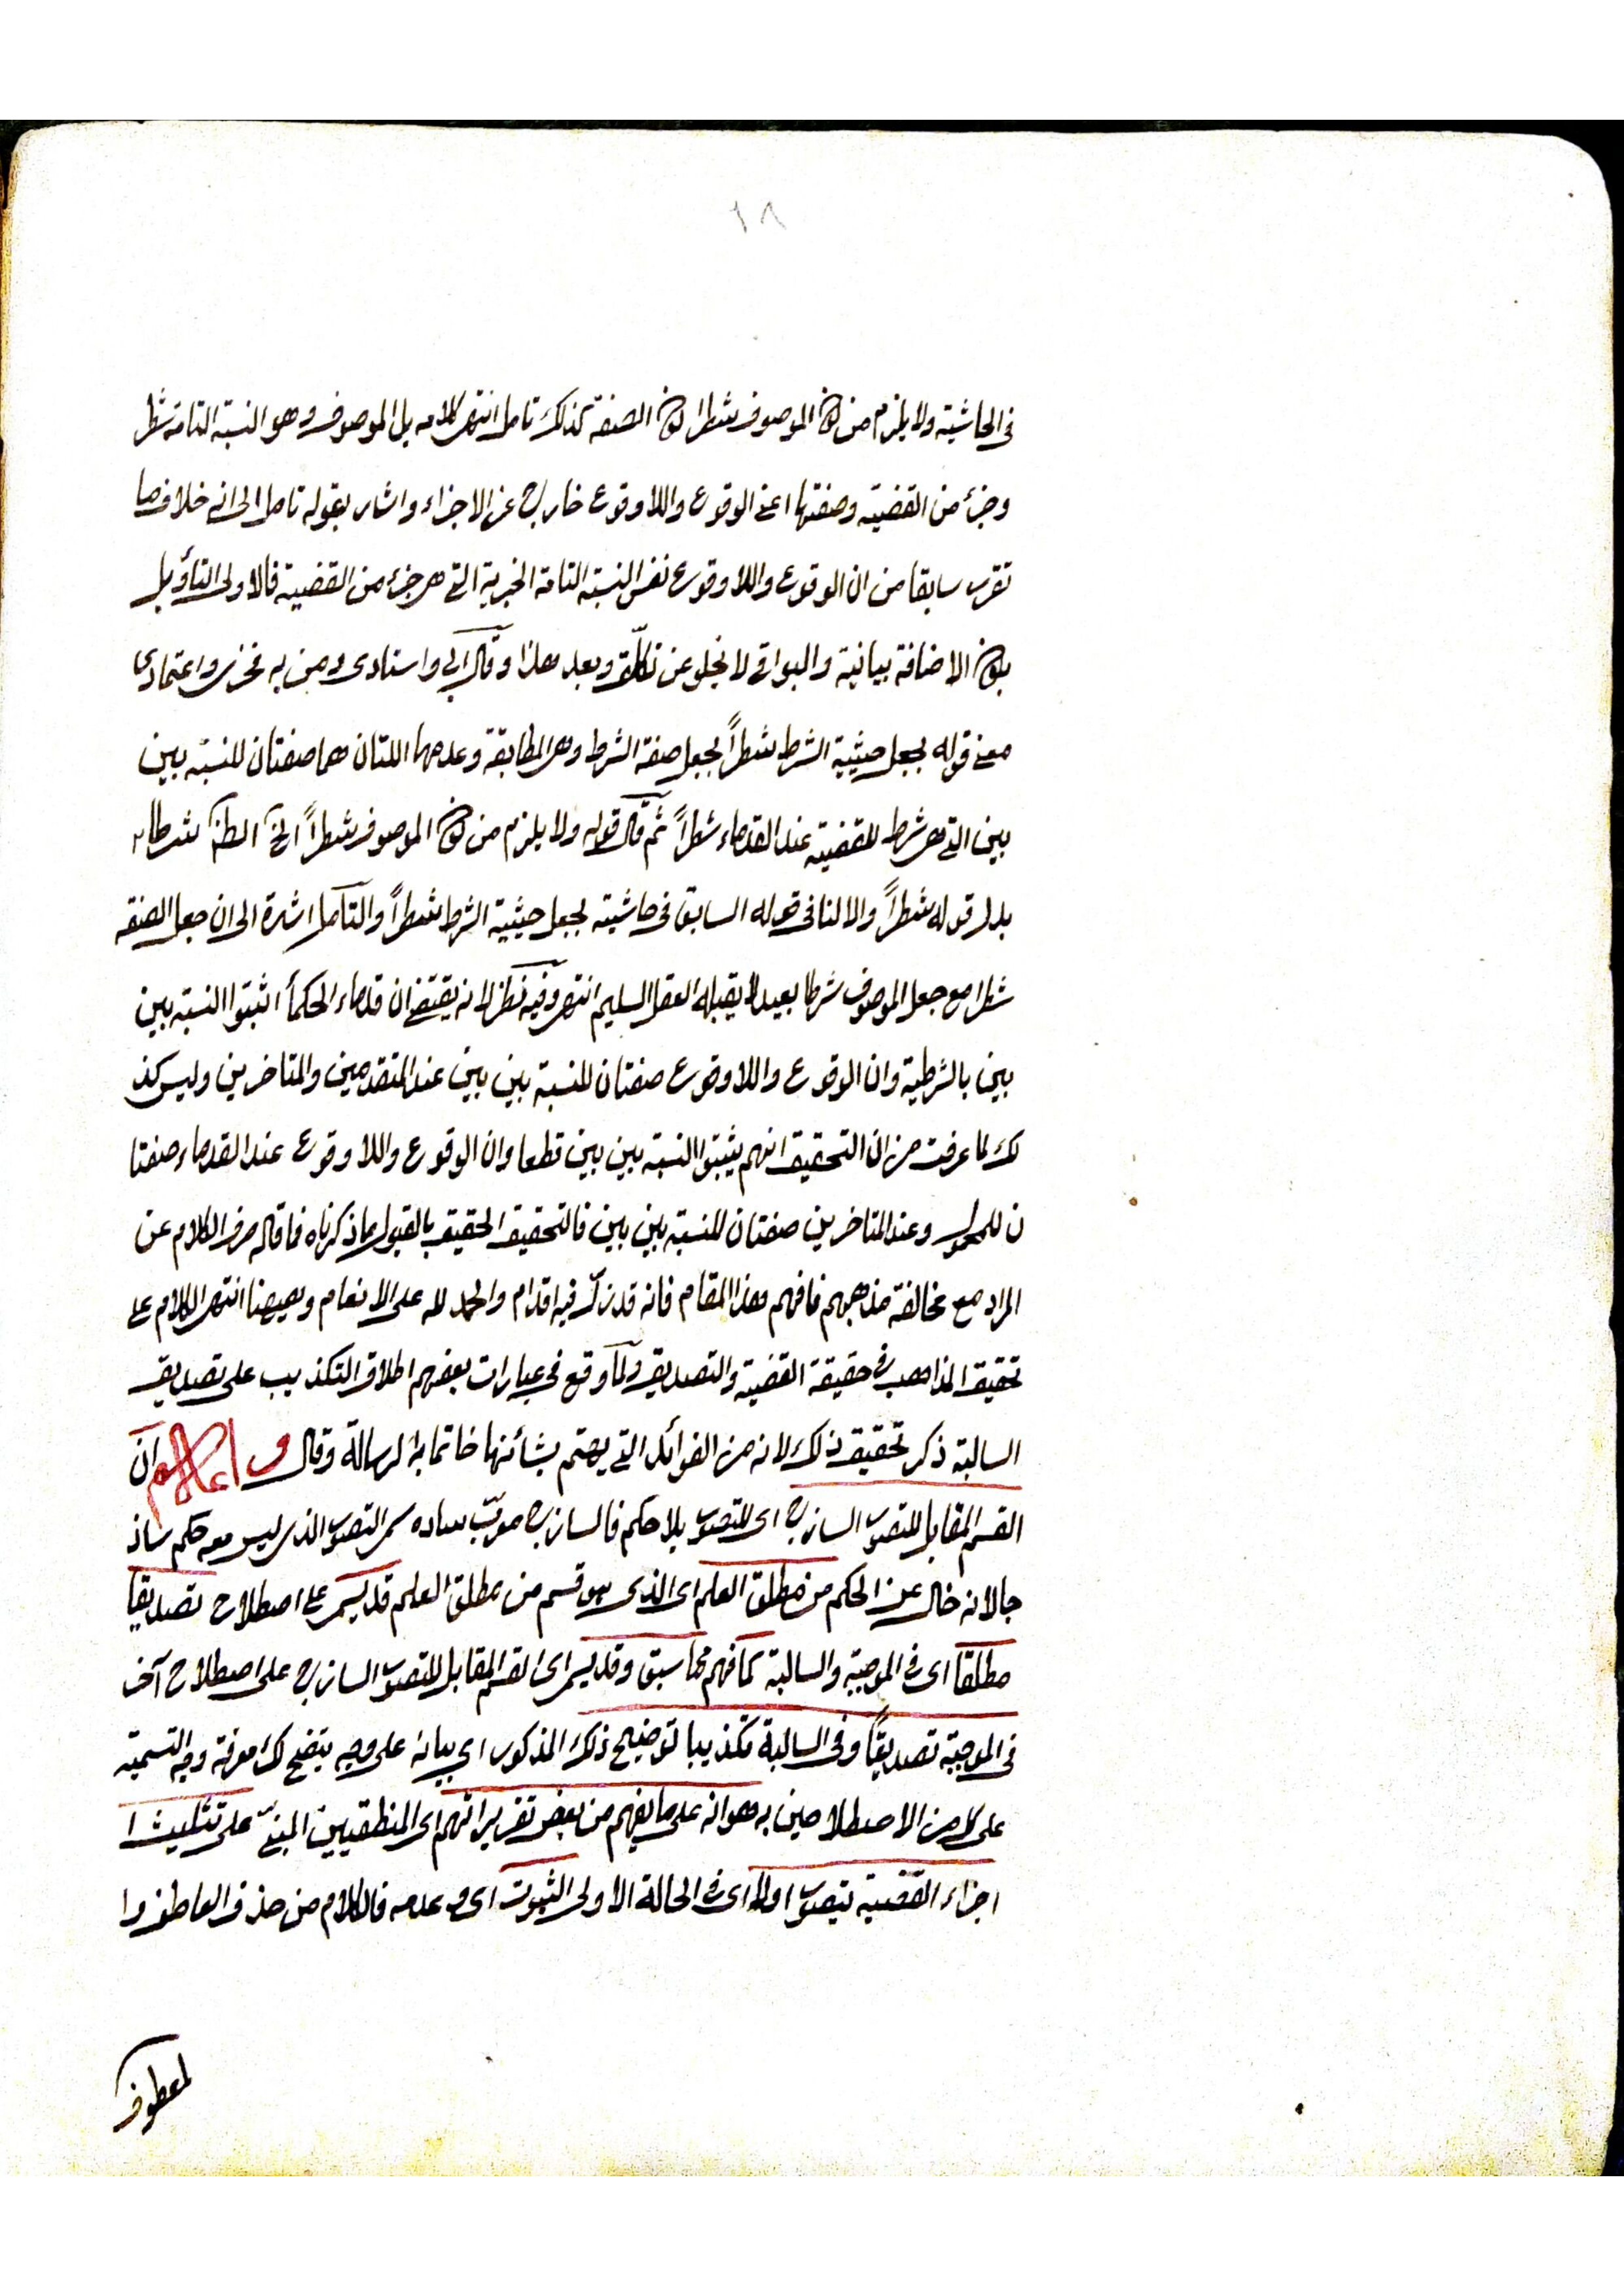 ١٨
في الحاشية ولا يلزم من كون الموصوف شطرا كون الصفة كذلك تامل انتهى كلامه بل الموصوف وهو النسبة التامة شطر
وجزء من القضية وصفتها اعني الوقوع واللا وقوع خارج عن الاجزاء واشار بقوله تامل الى انه خلاف ما
تقرر سابقا من ان الوقوع واللا وقوع نفس النسبة التامة الخبرية التي هي جزء من القضية فالاولى التأويل
بكون الاضافة بيانية والبواقي لا يخلو عن تكلف وبعد هذا وقال ابي واستادي ومن به فخري واعتمادي
معنى قوله بجعل حيثية الشرط شطراً بجعل صفة الشرط وهي المطابقة وعدمها اللتان هما صفتان للنسبة بين
بين التي هي شرط للقضية عند القدماء شطراً ثم قال قوله ولا يلزم من كون الموصوف شطراً الخ الظ شرطا
بدل قوله شطراً والا لنافى قوله السابق في حاشيته بجعل حيثية الشرط شطراً والتأمل اشارة الى ان جعل الصفة
شطرا مع جعل الموصوف شرطا بعيد لا يقبله العقل السليم انتهى وفيه نظر لانه يقتضي ان قدماء الحكمأ اثبتوا النسبة بين
بين بالشرطية وان الوقوع واللا وقوع صفتان للنسبة بين بين عند المتقدمين والمتاخرين وليس كذ
لك لما عرفت من ان التحقيق انهم يثبتوا النسبة بين بين قطعا وان الوقوع واللا وقوع عند القدماء صفتا
ن للمحمول وعند المتاخرين صفتان للنسبة بين بين فالتحقيق الحقيق بالقبول ما ذكرناه فما قاله صرف الكلام عن
المراد مع مخالفة مذهبهم فافهم هذا المقام فانه قد زلّ فيه اقدام والحمد لله على الانعام وههنا انتهى الكلام على
تحقيق المذاهب في حقيقة القضية والتصديق ولما وقع في عبارات بعضهم اطلاق التكذيب على تصديق
السالبة ذكر تحقيق ذلك لانه من الفوائد التي يهتم بشأنها خاتما به الرسالة وقال واعلم ان
القسم المقابل للتصور الساذج اى للتصور بلا حكم فالساذج معرّب ساده سمى التصور الذي ليس معه حكم ساذ
جا لانه خال عن الحكم من مطلق العلم اى الذى هو قسم من مطلق العلم قد يسمى على اصطلاح تصديقا
مطلقا اى في الموجبة والسالبة كما فهم مما سبق وقد يسمى اى القسم المقابل للتصور الساذج على اصطلاح آخر
في الموجبة تصديقاً وفي السالبة تكذيبا توضيح ذلك المذكور اي بيانه على وجه يتضح لك معرفة وجه التسمية
على كل من الاصطلاحين به هو انه على ما يفهم من بعض تقريراتهم اى المنطقيين المبنيّ على تثليث ا
جزاء القضية يتصور اولا اى في الحالة الاولى الثبوت اى وعدمه فالكلام من حذف العاطف وا
لمعطوف